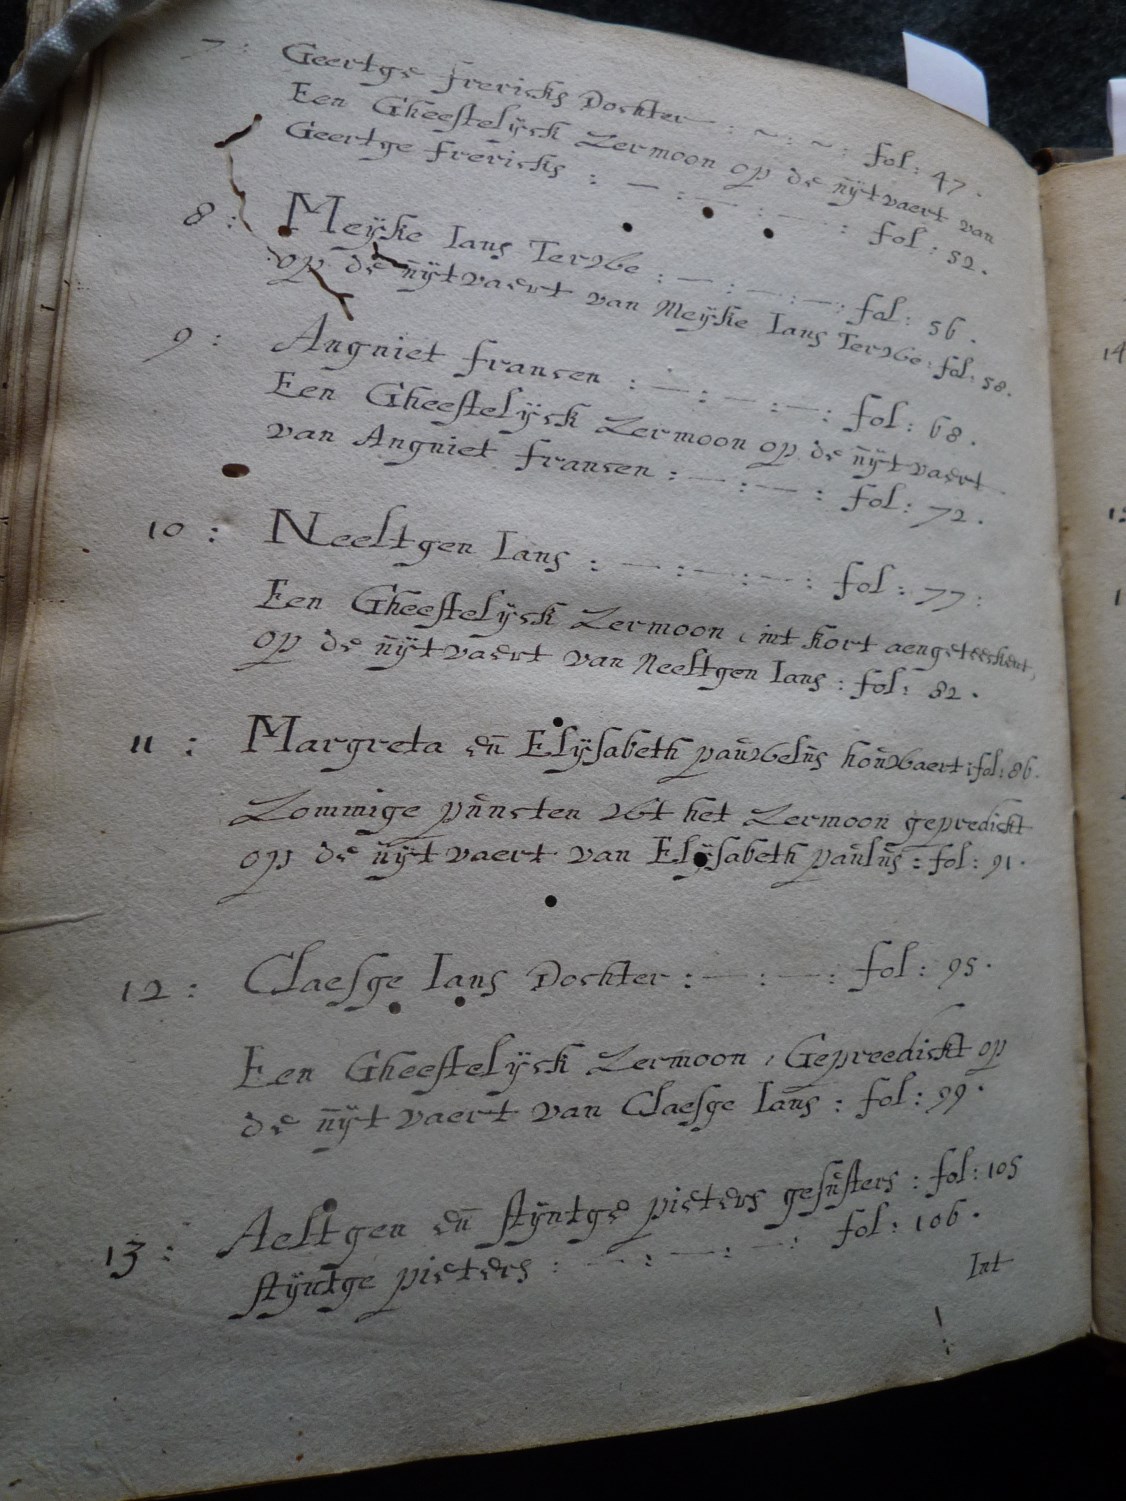 7 : Geertge frericks Dochter : ~ : ~ : fol : 47 .
Een Gheestelÿck Zermoon op de ũÿtvaert van
Geertge frericks : — : — : — : fol : 52 .
8 : Meÿke Ians : — : — : — : fol : 56 .
op de ũÿtvaert van Meÿke Ians : fol : 58 .
9 : Angniet fransen : — : — : — : fol : 68 .
Een Gheestelÿck Zermoon op de ũÿtvaert
van Angniet fransen : — : — : fol : 72 .
10 : Neeltgen Ians : — : — : — : fol : 77 :
Een Gheestelÿck Zermoon , int kort aengeteeckent,
op de ũÿtvaert van Neeltgen Ians : fol : 82 .
11 : Margreta en̄ Elÿsabeth : fol : 86 .
Zommige pũncten het Zermoon gepredickt
op de ũÿtvaert van Elÿsabeth paũlũs : fol : 91 .
12 : Claesge Ians Dochter : — : — : fol : 95 .
Een Gheestelÿck Zermoon , Gepreedickt op
de ũÿtvaert van Claesge Ians : fol : 99 .
13 : Aeltgen en̄ stÿntge pieters gesũsters : fol : 105
stÿntge pieters : — : — : — : fol : 106 .
Int
14